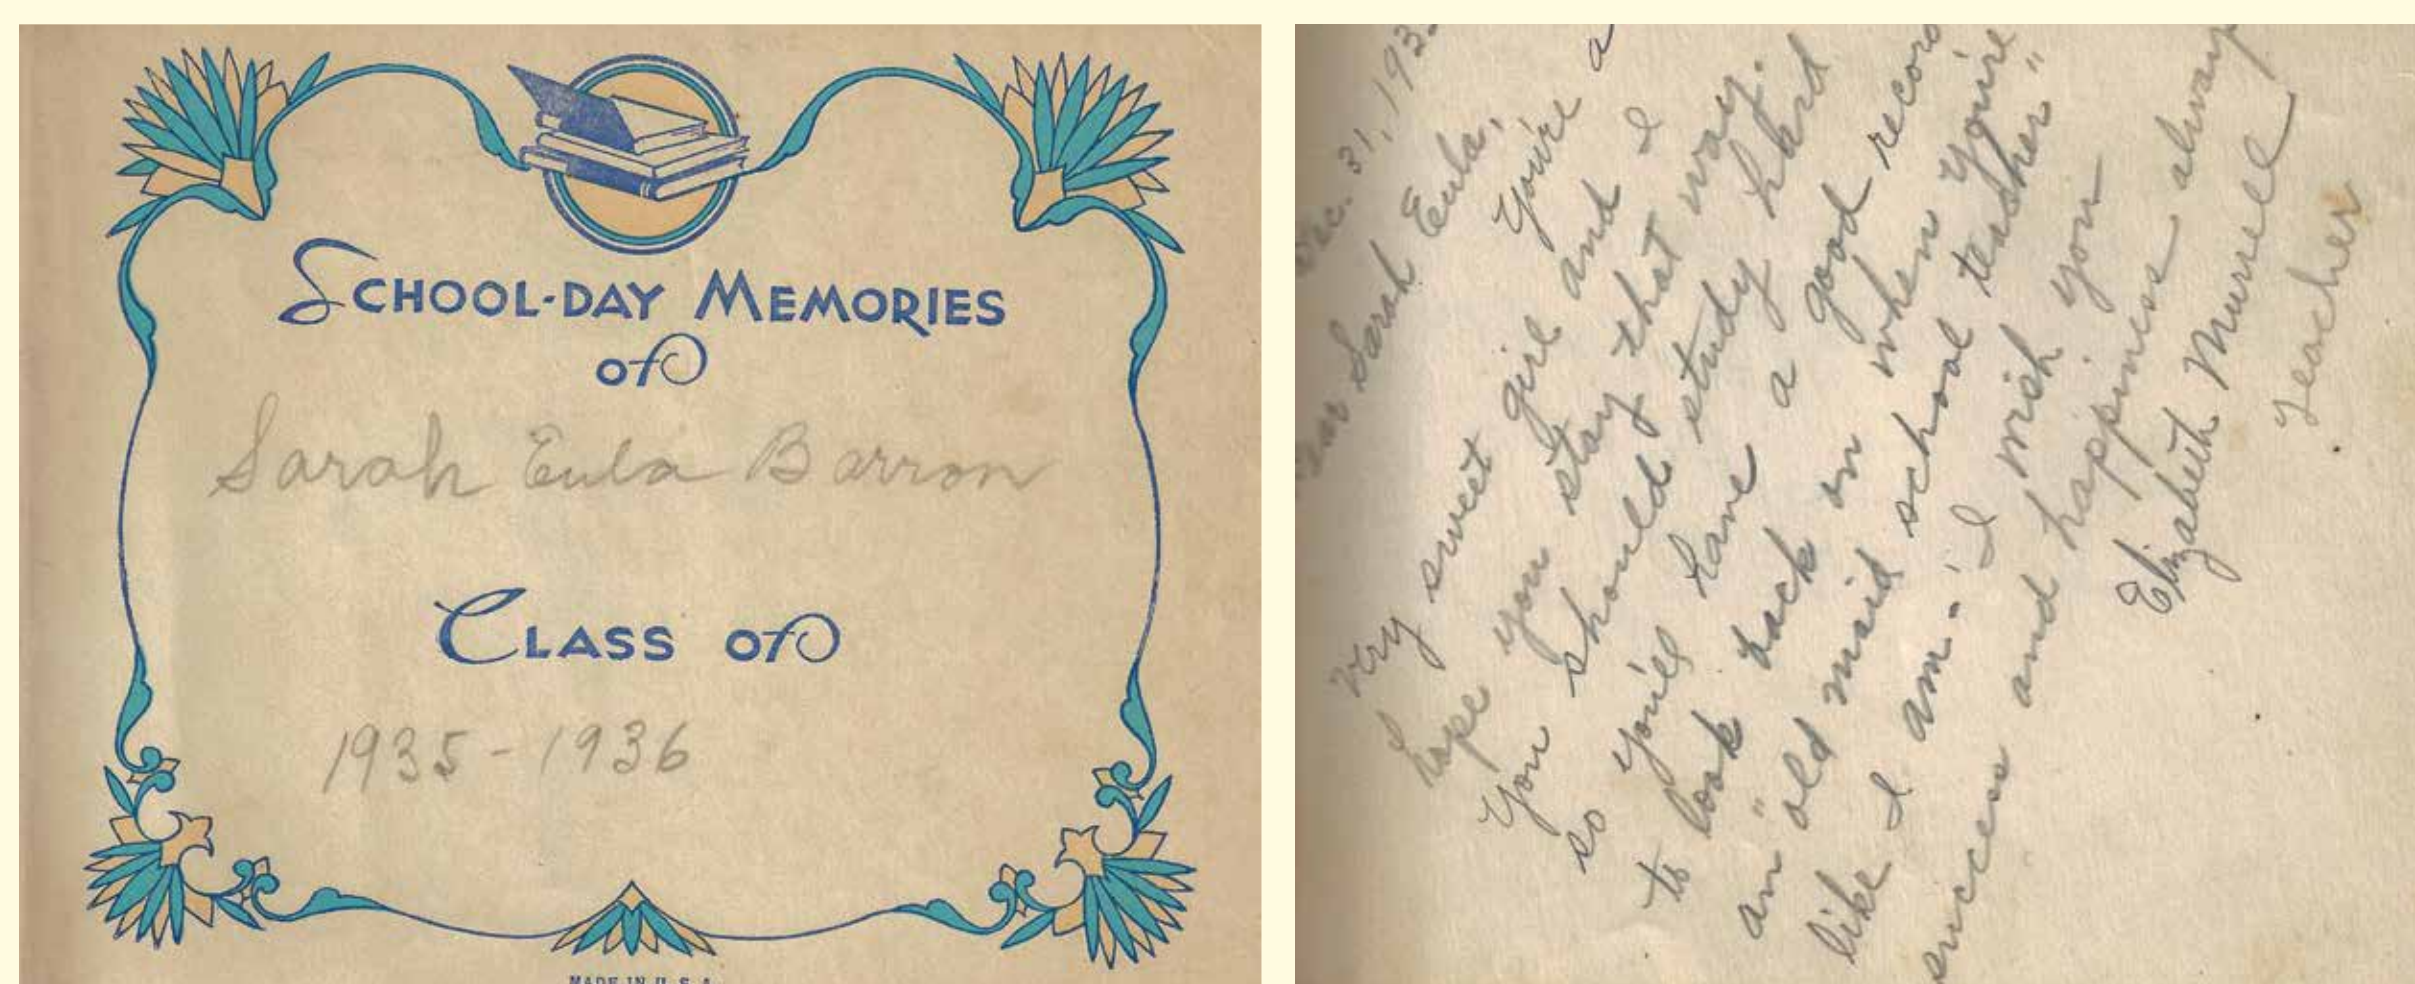 SCHOOL-DAY MEMORIES
of
Sarah Eula Barron
CLASS of
1935-1936
MADE IN U.S.A.
Dec. 31, 193
Dear Sarah Eula,
You're a
very sweet girl and I
hope you stay that way.
You should study hard
so you'll have a good record
to look back on when you're
an "old maid school teacher"
like I am. I wish you
success and happiness always
Elizabeth Murrell
Teacher